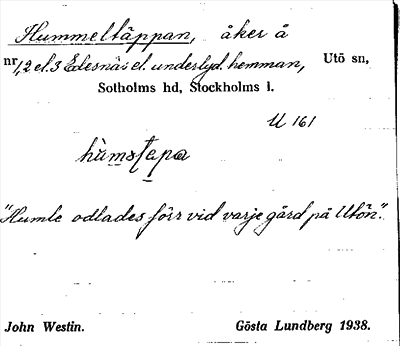 Hummeltäppan, åker å
nr 1, 2 el. 3 Edesnäs el. underlyd. hemman, Utö sn,
Sotholms hd, Stockholms l.
U 161
"Humle odlades förr vid varje gård på Utön."
John Westin. Gösta Lundberg 1938.